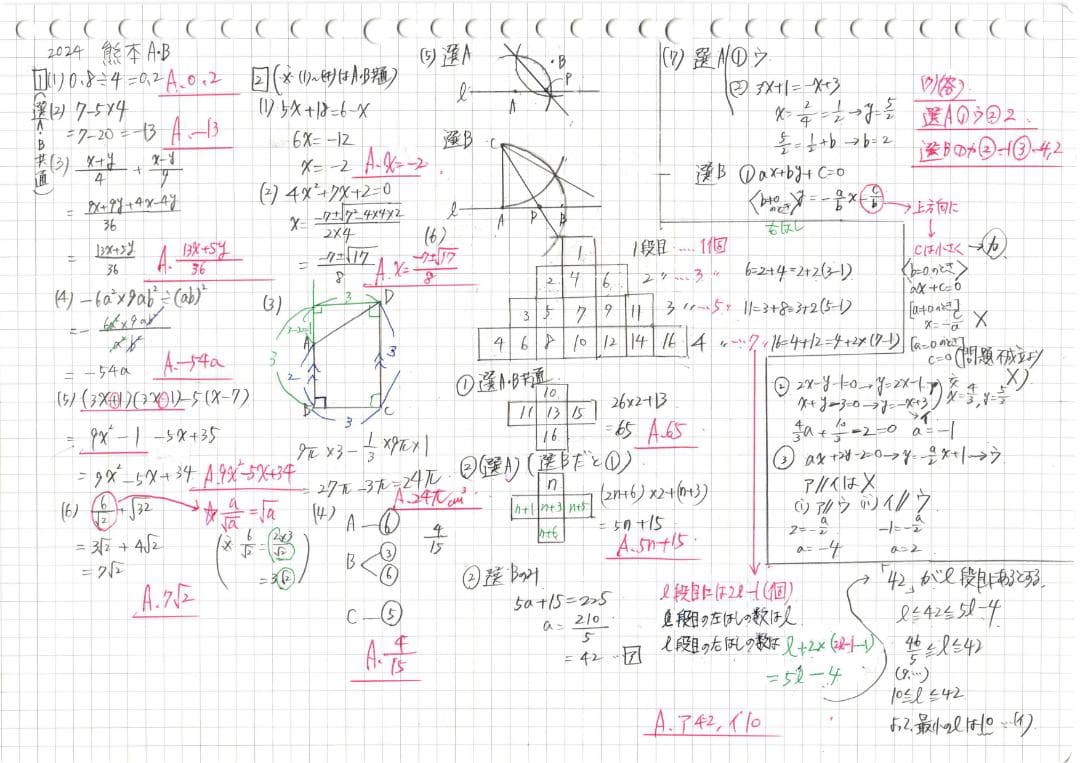 2024 熊本A・B
1 (選A・B共通)
(1) 0.8÷4=0.2 A. 0.2
(2) 7-5×4
=7-20=-13 A. -13
(3) (x+y)/4 + (x-y)/9
= (9x+9y+4x-4y)/36
= (13x+5y)/36 A. (13x+5y)/36
(4) -6a²×9ab²÷(ab)²
= - (6a²×9ab²)/(a²b²)
= -54a A. -54a
(5) (3x+1)(3x-1)-5(x-7)
= 9x²-1-5x+35
= 9x²-5x+34 A. 9x²-5x+34
(6) 6/√2+√32
☆ a/√a=√a
=3√2+4√2
=7√2
(※ 6/√2=(2×3)/√2
=3√2)
A. 7√2
2 (※(1)~(4)はA・B共通)
(1) 5x+18=6-x
6x=-12
x=-2 A. x=-2
(2) 4x²+7x+2=0
x= (-7±√(7²-4×4×2))/(2×4)
= (-7±√17)/8 A. x=(-7±√17)/8
(3)
3 D
A
3 2 3
B C
3
9π×3-1/3×9π×1
=27π-3π=24π
A. 24πcm³
(4)
A-⑥
B<③
⑥
C-⑤
4/15
A. 4/15
(5) 選A
B
P
ℓ A
選B C
ℓ A P B
(6)
1
2 4 6
3 5 7 9 11
4 6 8 10 12 14 16
1段目……1個
2 〃 …… 3 〃 6=2+4=2+2(3-1)
3 〃 …… 5 〃 11=3+8=3+2(5-1)
4 〃 …… 7 〃 16=4+12=4+2×(7-1)
① 選A・B共通
10
11 13 15
16
26×2+13
=65 A. 65
② (選A) (選Bだと①)
n
n+1 n+3 n+5
n+6
(2n+6)×2+(n+3)
=5n+15
A. 5n+15
② 選Bのみ
5a+15=225
a=210/5
=42 …ア
ℓ段目には2ℓ-1(個)
ℓ段目の左はしの数はℓ
ℓ段目の右はしの数は ℓ+2×(2ℓ-1-1)
=5ℓ-4
「42」がℓ段目にあるとする.
ℓ≦42≦5ℓ-4
46/5≦ℓ≦42
(9.…)
10≦ℓ≦42
よって、最小のℓは10 …(イ)
A. ア42, イ10
(7) 選A ① ウ
② 3x+1=-x+3
x=2/4=1/2→y=5/2
5/2=1/2+b→b=2
(7)(答)
選A①ウ②2
選B①カ②-1③-4,2
選B ① ax+by+c=0
<b≠0のとき> y=-a/b x-c/b
右はし
→上方向に
cは小さく→カ
<b=0のとき>
ax+c=0
[a≠0のとき]
x=-c/a X
[a=0のとき]
c=0(問題不成立よりX)
② 2x-y-1=0→y=2x-1…ア
x+y-3=0→y=-x+3 …イ
交 x=4/3, y=5/3
4/3a+10/3-2=0 a=-1
③ ax+2y-2=0→y=-a/2x+1→ウ
ア//イはX
(i) ア//ウ (ii) イ//ウ
2=-a/2 -1=-a/2
a=-4 a=2